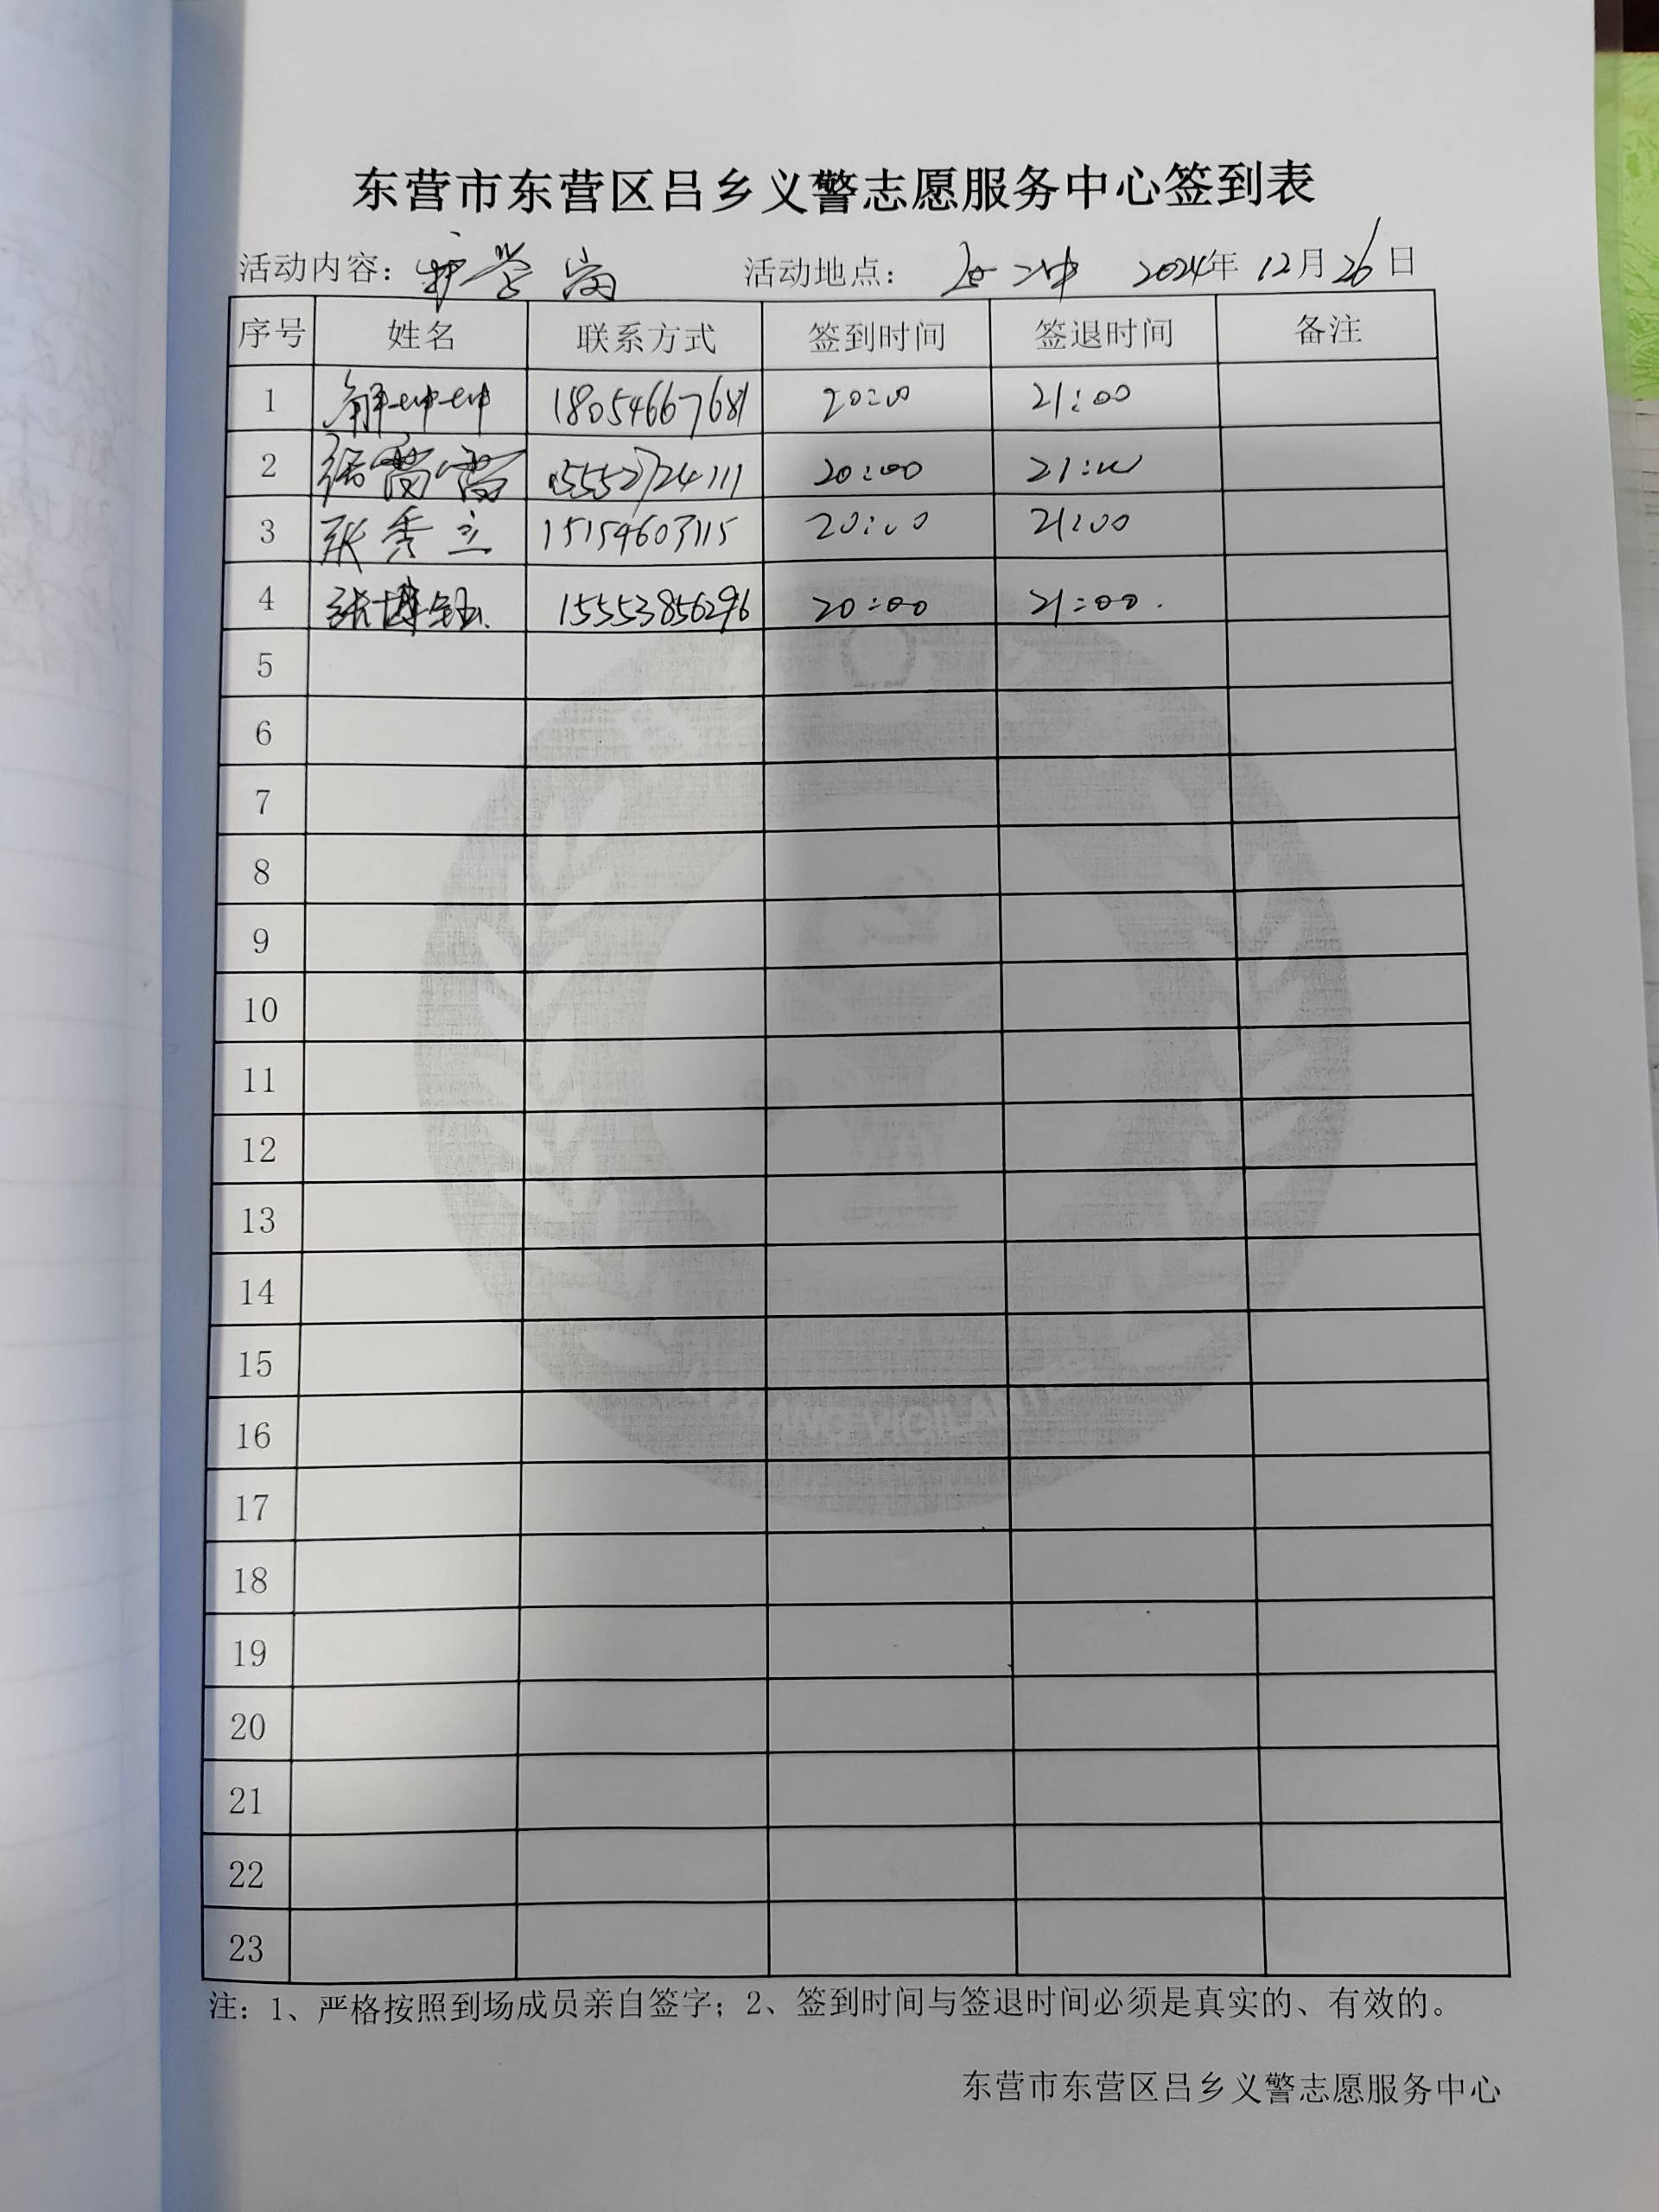 东营市东营区吕乡义警志愿服务中心签到表
活动内容：护学岗 活动地点： 2024年12月26日
序号 姓名 联系方式 签到时间 签退时间 备注
1 解坤坤 18054667681 20:00 21:00
2 15552724111 20:00 21:00
3 张秀立 15154603115 20:00 21:00
4 张博钰 15553856296 20:00 21:00.
5
6
7
8
9
10
11
12
13
14
15
16
17
18
19
20
21
22
23
注：1、严格按照到场成员亲自签字；2、签到时间与签退时间必须是真实的、有效的。
东营市东营区吕乡义警志愿服务中心